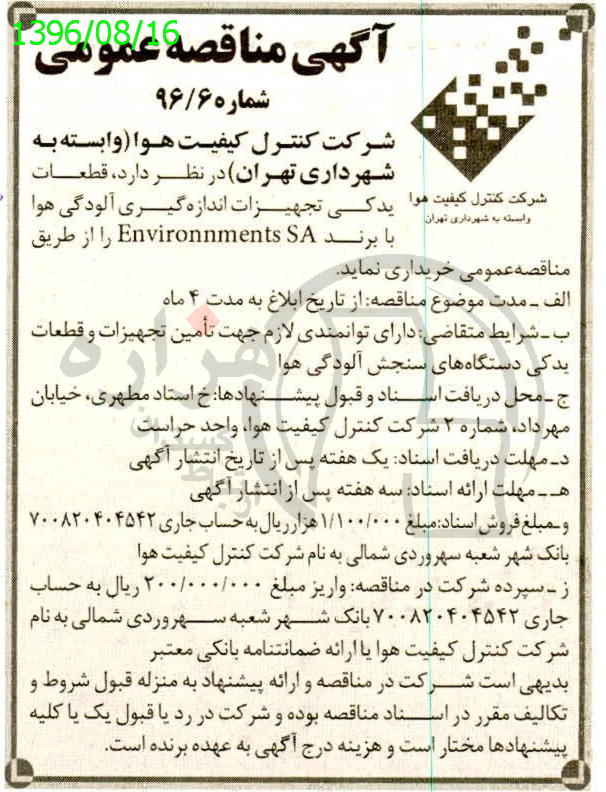 1396/08/16
آگهی مناقصه عمومی
شماره ۹۶/۶
شرکت کنترل کیفیت هوا (وابسته به
شهرداری تهران) در نظر دارد، قطعات
یدکی تجهیزات اندازه‌گیری آلودگی هوا
با برند Environnments SA را از طریق
شرکت کنترل کیفیت هوا
وابسته به شهرداری تهران
مناقصه‌عمومی خریداری نماید.
الف ـ مدت موضوع مناقصه: از تاریخ ابلاغ به مدت ۴ ماه
ب ـ شرایط متقاضی: دارای توانمندی لازم جهت تأمین تجهیزات و قطعات
یدکی دستگاه‌های سنجش آلودگی هوا
ج ـ محل دریافت اسناد و قبول پیشنهادها: خ استاد مطهری، خیابان
مهرداد، شماره ۲ شرکت کنترل کیفیت هوا، واحد حراست
د ـ مهلت دریافت اسناد: یک هفته پس از تاریخ انتشار آگهی
هـ ـ مهلت ارائه اسناد: سه هفته پس از انتشار آگهی
و ـ مبلغ فروش اسناد: مبلغ ۱/۱۰۰/۰۰۰ هزار ریال به حساب جاری ۷۰۰۸۲۰۴۰۴۵۴۲
بانک شهر شعبه سهروردی شمالی به نام شرکت کنترل کیفیت هوا
ز ـ سپرده شرکت در مناقصه: واریز مبلغ ۲۰۰/۰۰۰/۰۰۰ ریال به حساب
جاری ۷۰۰۸۲۰۴۰۴۵۴۲ بانک شهر شعبه سهروردی شمالی به نام
شرکت کنترل کیفیت هوا یا ارائه ضمانتنامه بانکی معتبر
بدیهی است شرکت در مناقصه و ارائه پیشنهاد به منزله قبول شروط و
تکالیف مقرر در اسناد مناقصه بوده و شرکت در رد یا قبول یک یا کلیه
پیشنهادها مختار است و هزینه درج آگهی به عهده برنده است.
هزاره